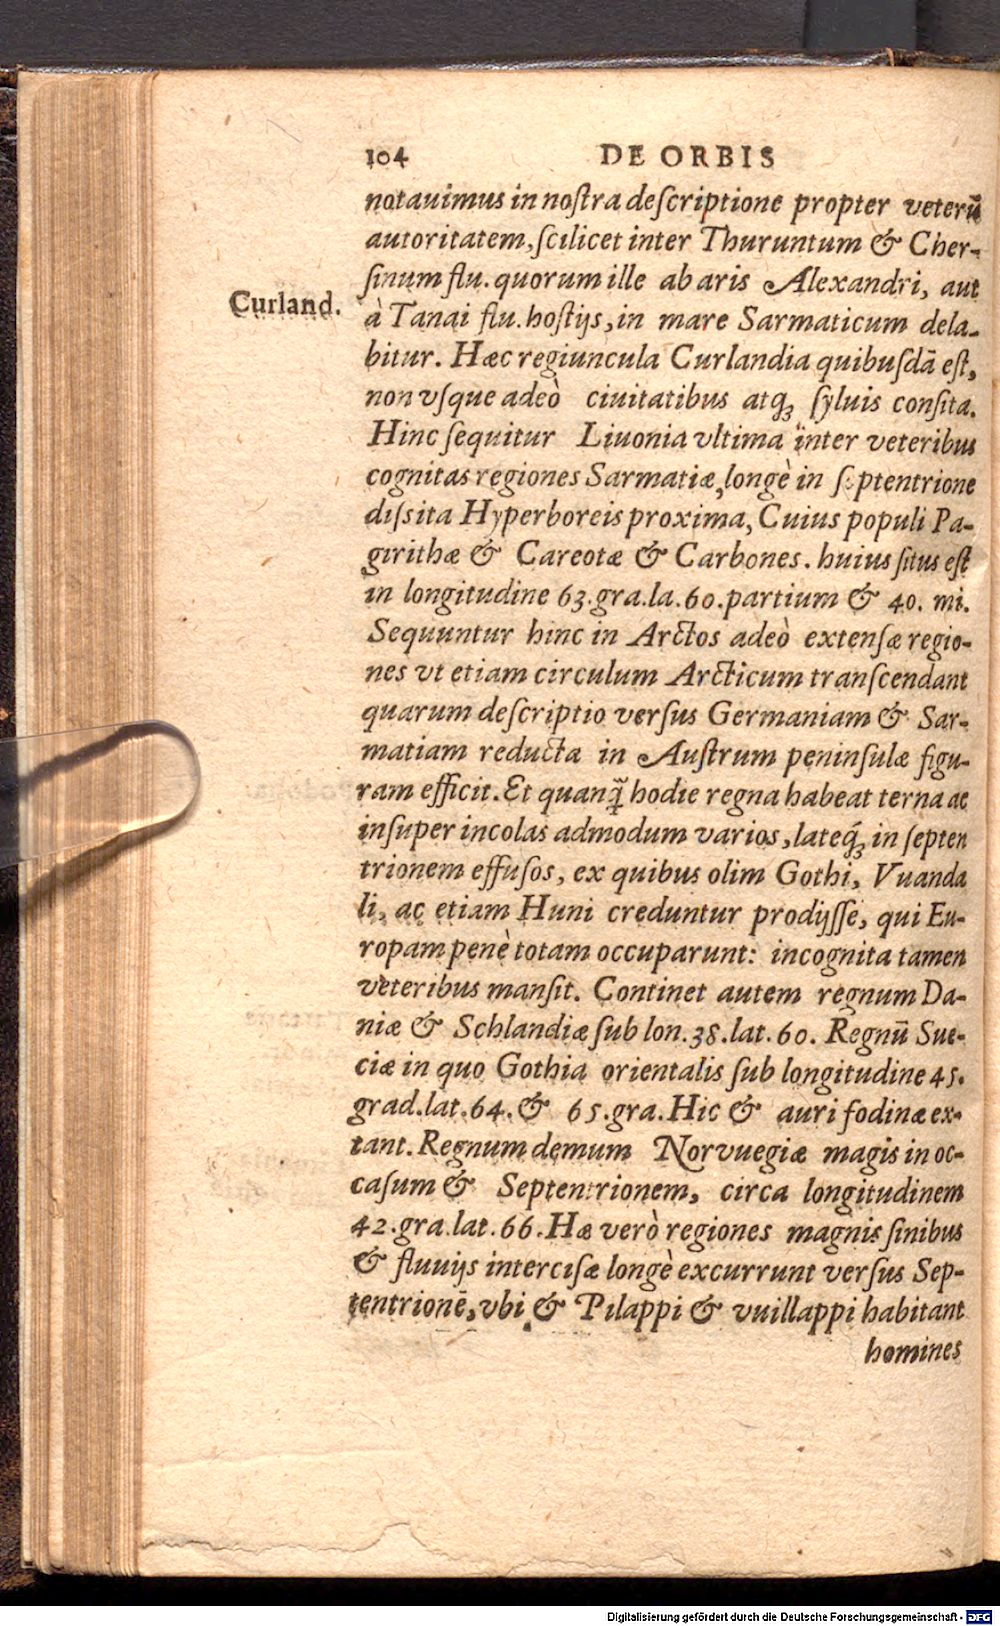 104 DE ORBIS
notauimus in noſtra deſcriptione propter veterū
autoritatem, ſcilicet inter Thuruntum & Cher-
ſinum flu. quorum ille ab aris Alexandri, aut
Curland.
à Tanai flu. hoſtijs, in mare Sarmaticum dela-
bitur. Hæc regiuncula Curlandia quibuſdā eſt,
non vſque adeò ciuitatibus atq́ꝫ ſyluis conſita.
Hinc ſequitur Liuonia vltima inter veteribus
cognitas regiones Sarmatiæ, longè in ſeptentrione
diſsita Hyperboreis proxima, Cuius populi Pa-
girithæ & Careotæ & Carbones. huius ſitus eſt
in longitudine 63. gra. la. 60. partium & 40. mi.
Sequuntur hinc in Arctos adeò extenſæ regio-
nes vt etiam circulum Arcticum tranſcendant
quarum deſcriptio verſus Germaniam & Sar-
matiam reducta in Auſtrum peninſulæ figu-
ram efficit. Et quanq̃ hodie regna habeat terna ac
inſuper incolas admodum varios, lateq́ꝫ in ſepten
trionem effuſos, ex quibus olim Gothi, Vuanda
li, ac etiam Huni creduntur prodijſſe, qui Eu-
ropam penè totam occuparunt: incognita tamen
veteribus manſit. Continet autem regnum Da-
niæ & Schlandiæ ſub lon. 38. lat. 60. Regnū Sue-
ciæ in quo Gothia orientalis ſub longitudine 45.
grad. lat. 64. & 65. gra. Hic & auri fodinæ ex-
tant. Regnum demum Norvuegiæ magis in oc-
caſum & Septentrionem, circa longitudinem
42. gra. lat. 66. Hæ verò regiones magnis ſinibus
& fluuijs interciſæ longè excurrunt verſus Sep-
tentrionē, vbi & Pilappi & vuillappi habitant
homines
Digitalisierung gefördert durch die Deutsche Forschungsgemeinschaft - DFG